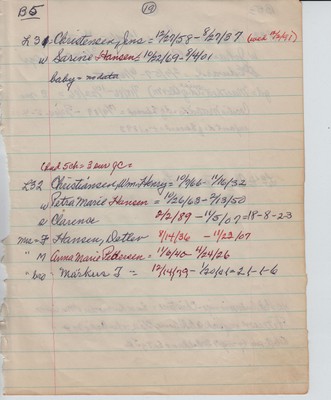 B5
(19)
L31 - Christensen, Jens = 12/27/58 - 8/27/37
w Sarine Hansen = 10/22/69 - 9/4/01
baby = no data
L32 Christiansen, Wm. Henry = 10/9/66 - 11/16/32
w Petra Marie Hansen = 10/26/63 - 2/13/50
s Clarence 8/2/89 - 11/5/07 = 18-8-23
F Hansen, Detlev 8/14/36 - 11/23/07
" M Anna Marie Pedersen = 11/6/40 - 4/24/26
" bro Markus J = 12/14/79 - 1/20/01 = 21-1-6